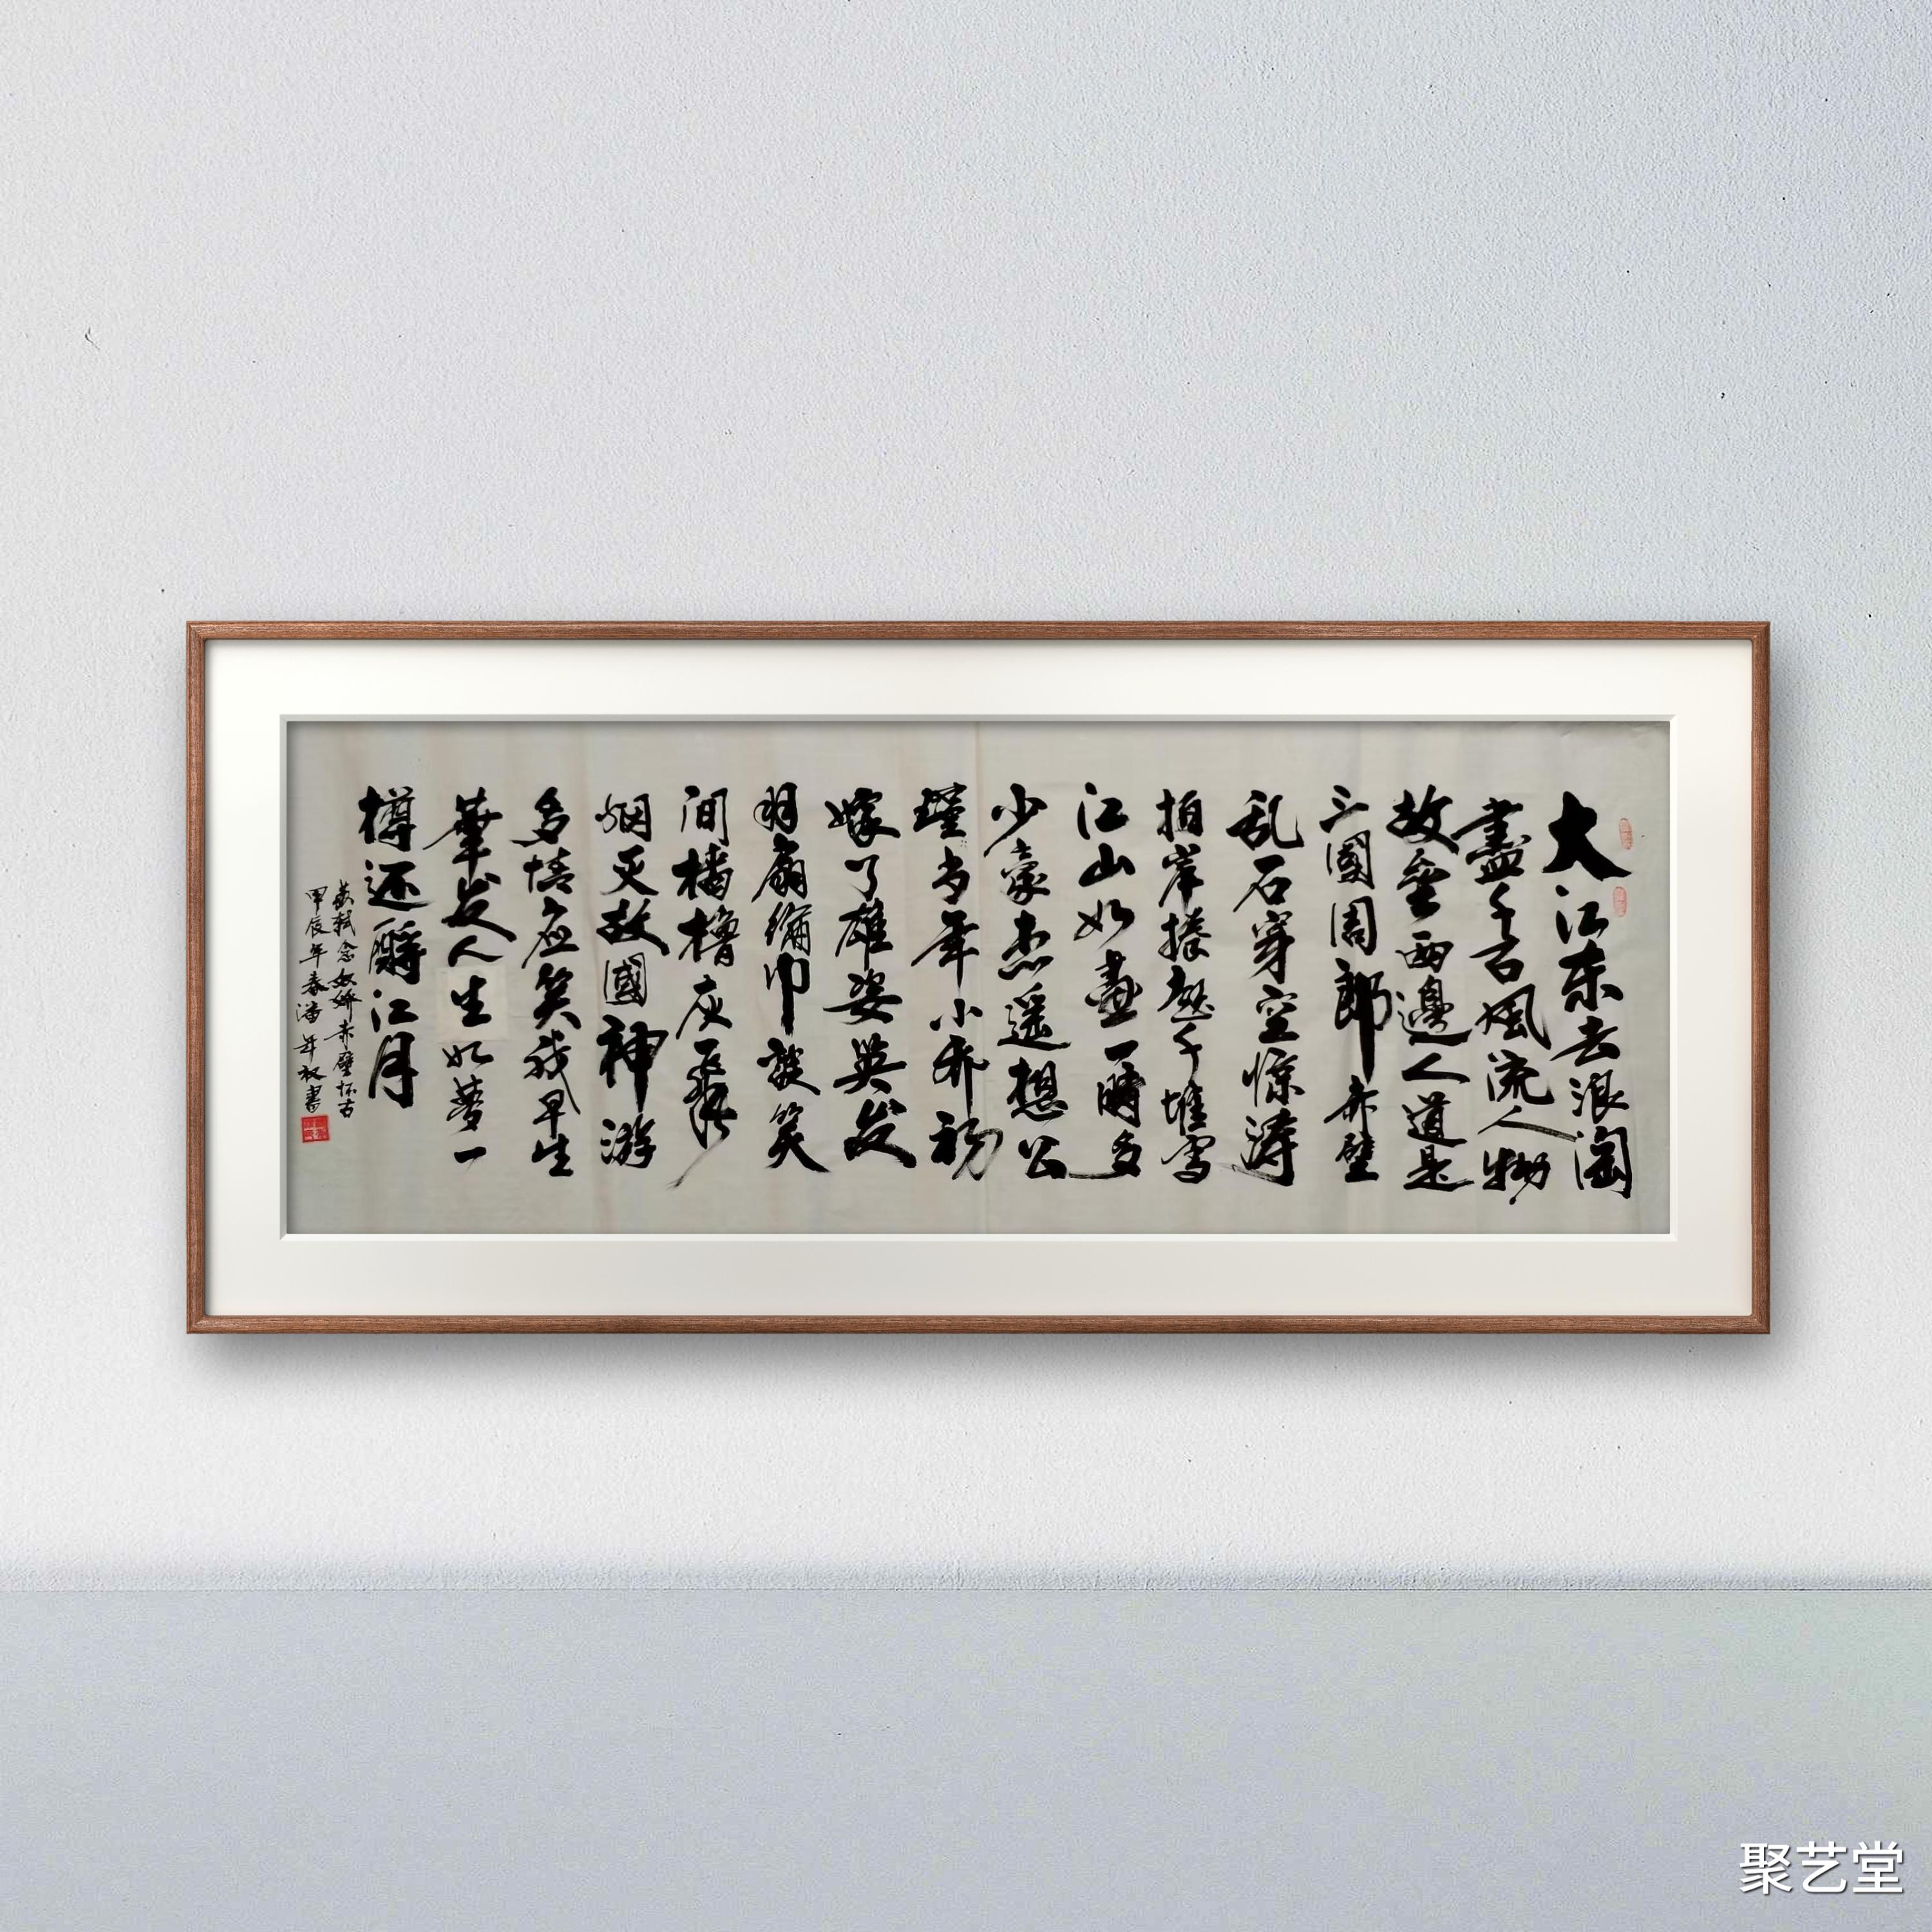 大江东去浪淘
盡千古風流人物
故垒西邊人道是
三國周郎赤壁
乱石穿空惊涛
拍岸捲起千堆雪
江山如畫一時多
少豪杰遥想公
瑾当年小乔初
嫁了雄姿英发
羽扇綸巾談笑
间檣櫓灰飛
烟灭故國神游
多情应笑我早生
華发人生如夢一
樽还酹江月
蘇軾念奴娇赤壁怀古
甲辰年春潘年权書
聚艺堂